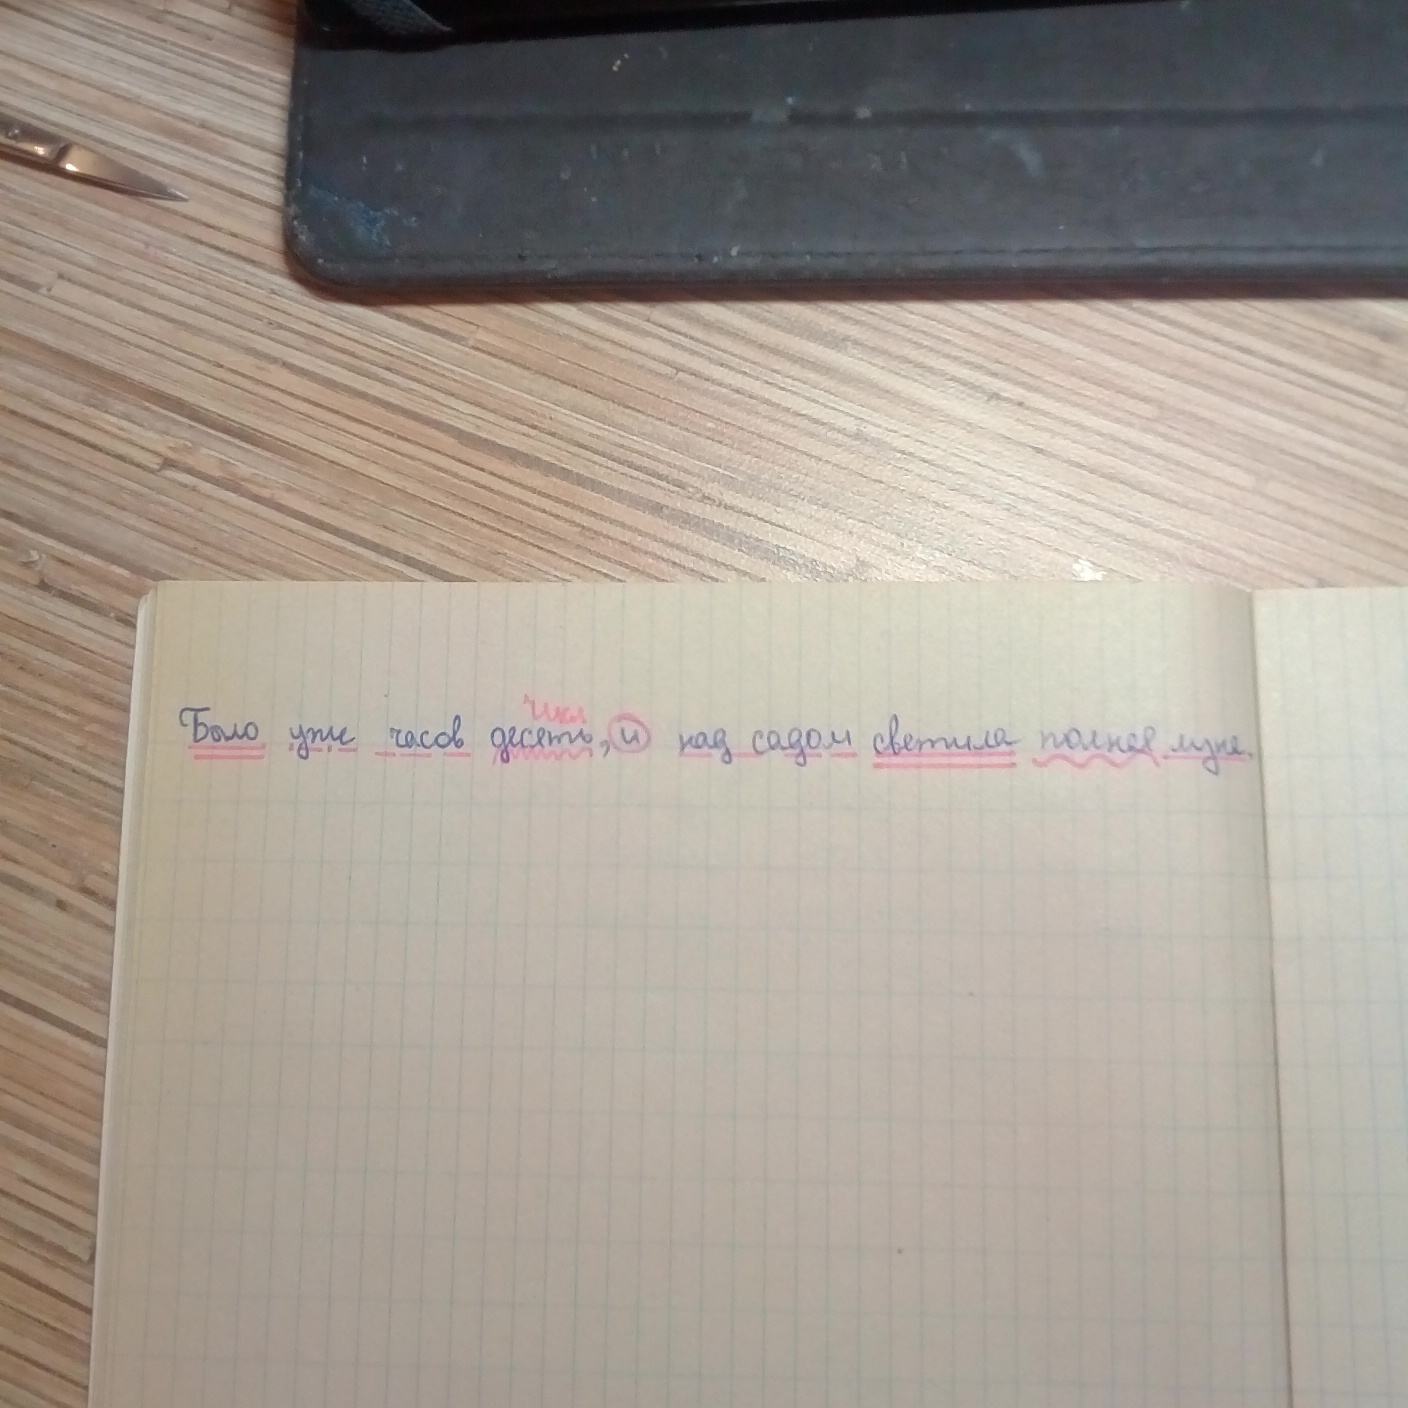 числ
Было уже часов десять, и над садом светила полная луна.